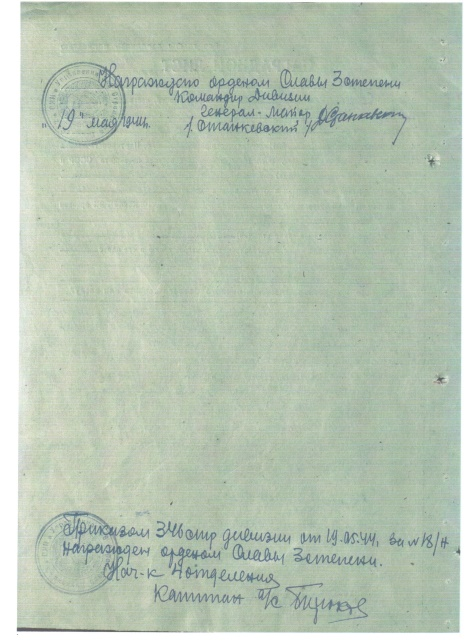 Награждаю орденом Славы 3й степени
Командир Дивизии
Генерал-Майор
"19" мая 1944г. /Станкевский/
Приказом 346 стр дивизии от 19.05.44г за №18/н
награжден орденом Славы 3й степени.
Нач-к 4 отделения
Капитан